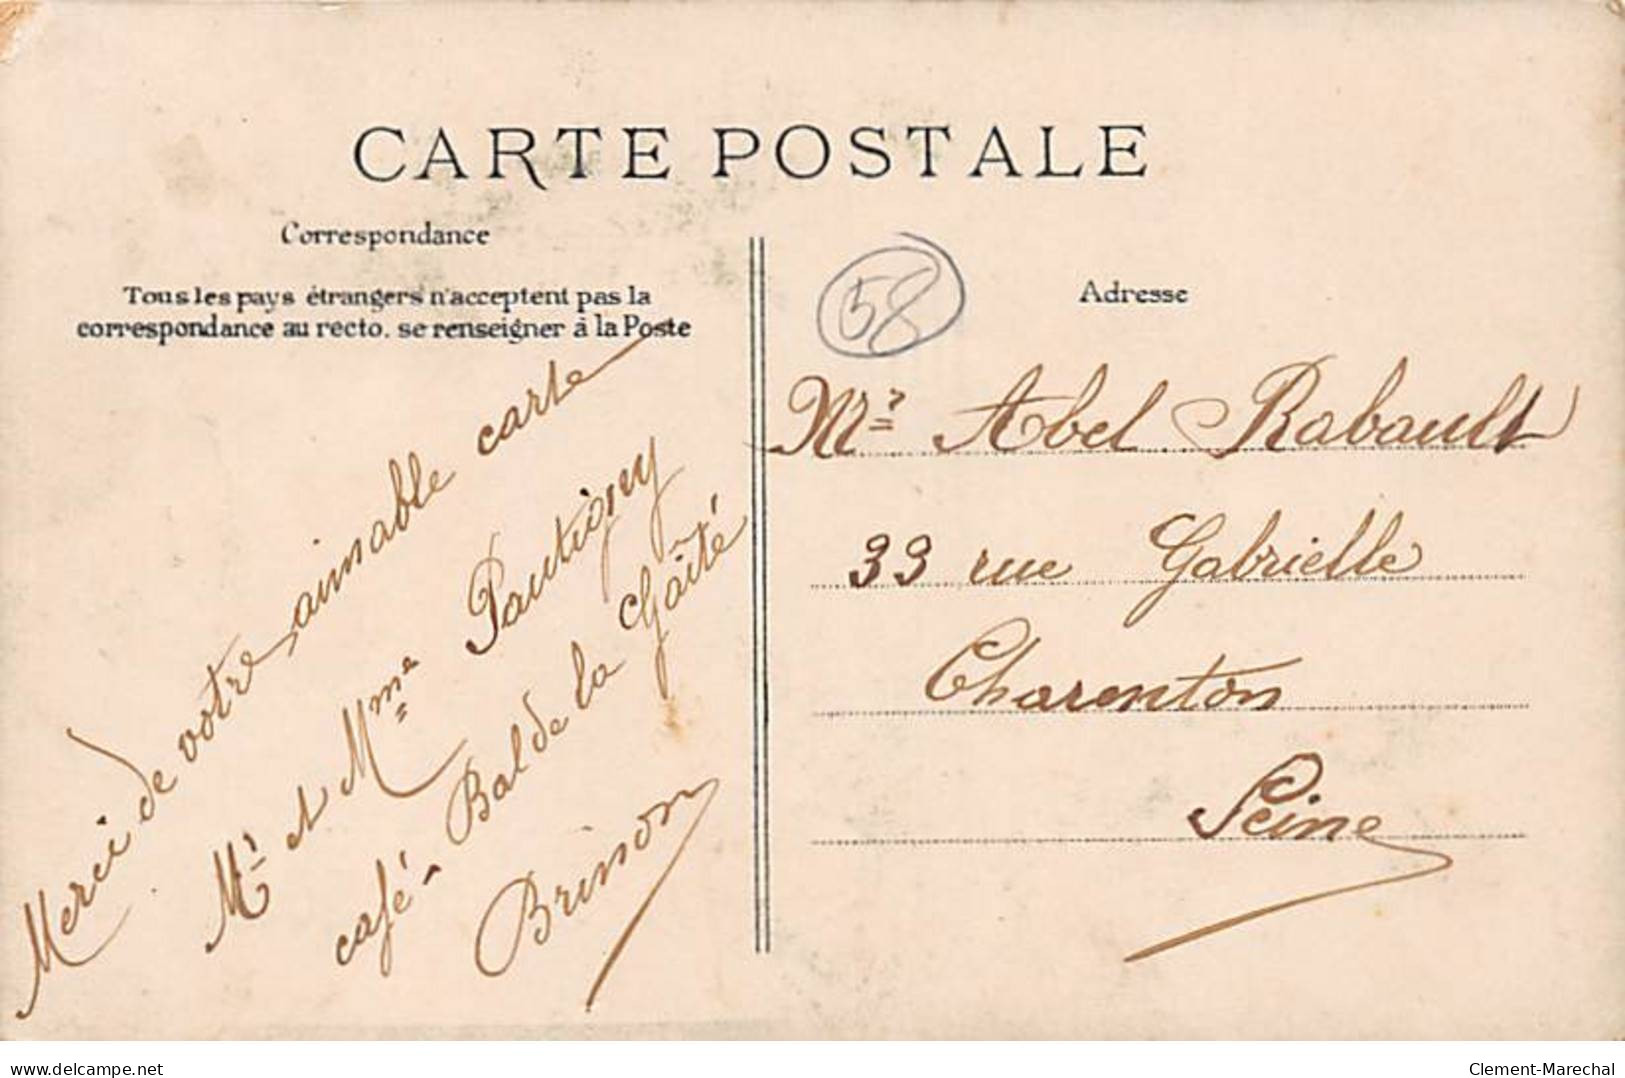 CARTE POSTALE
Correspondance
Tous les pays étrangers n'acceptent pas la
correspondance au recto. se renseigner à la Poste
Merci de votre aimable carte
Mr et Mme Pautigny
café - Bal de la Gâité
Brinon
58
Adresse
Mr Abel Rabault
33 rue Gabrielle
Charenton
Seine
delcampe.net
Clement-Marechal